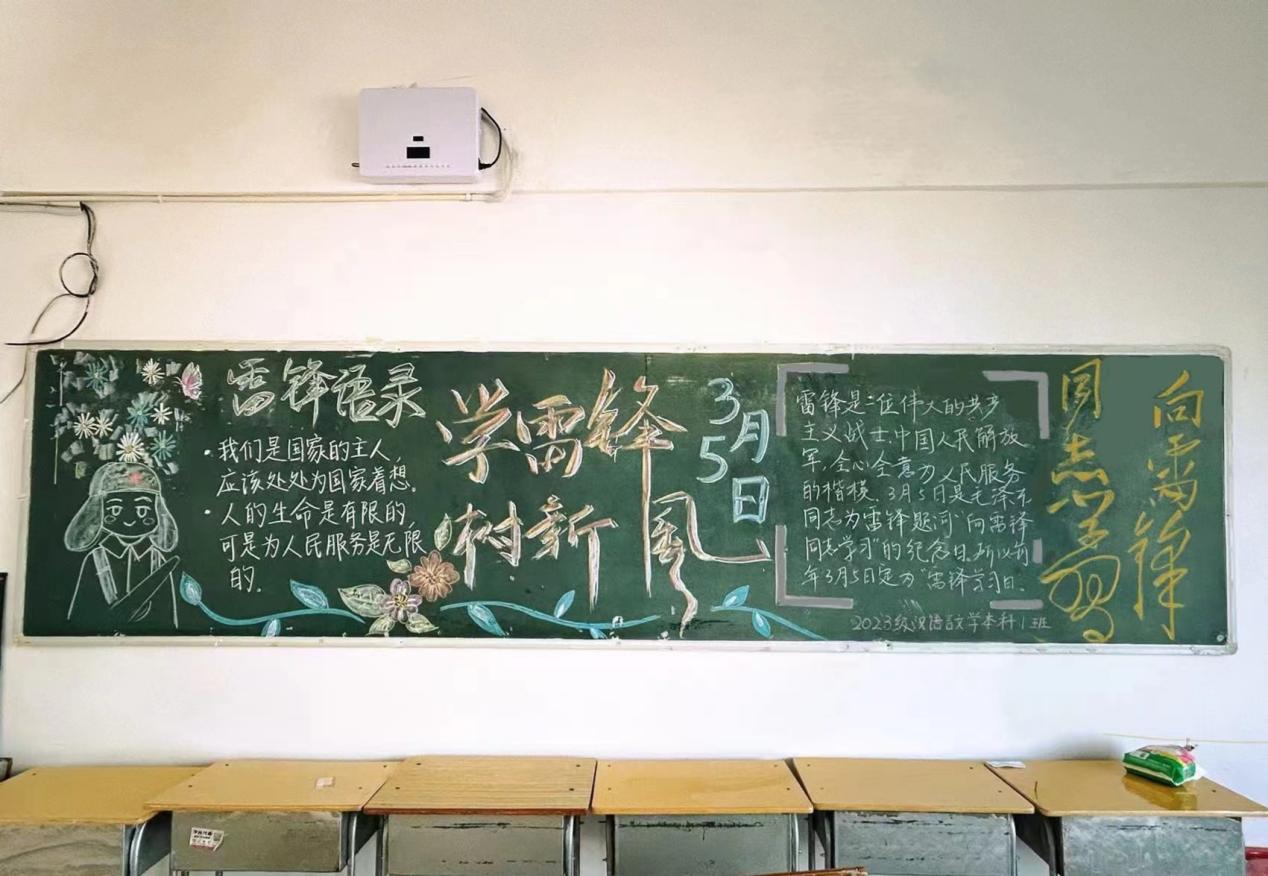 雷锋语录
·我们是国家的主人，
应该处处为国家着想。
·人的生命是有限的，
可是为人民服务是无限
的。
学雷锋
树新风
3月
5日
雷锋是一位伟大的共产
主义战士,中国人民解放
军,全心全意为人民服务
的楷模.3月5日是毛泽东
同志为雷锋题词"向雷锋
同志学习"的纪念日.所以每
年3月5日定为"雷锋学习日.
2023级汉语言文学本科1班
向雷锋
同志学习